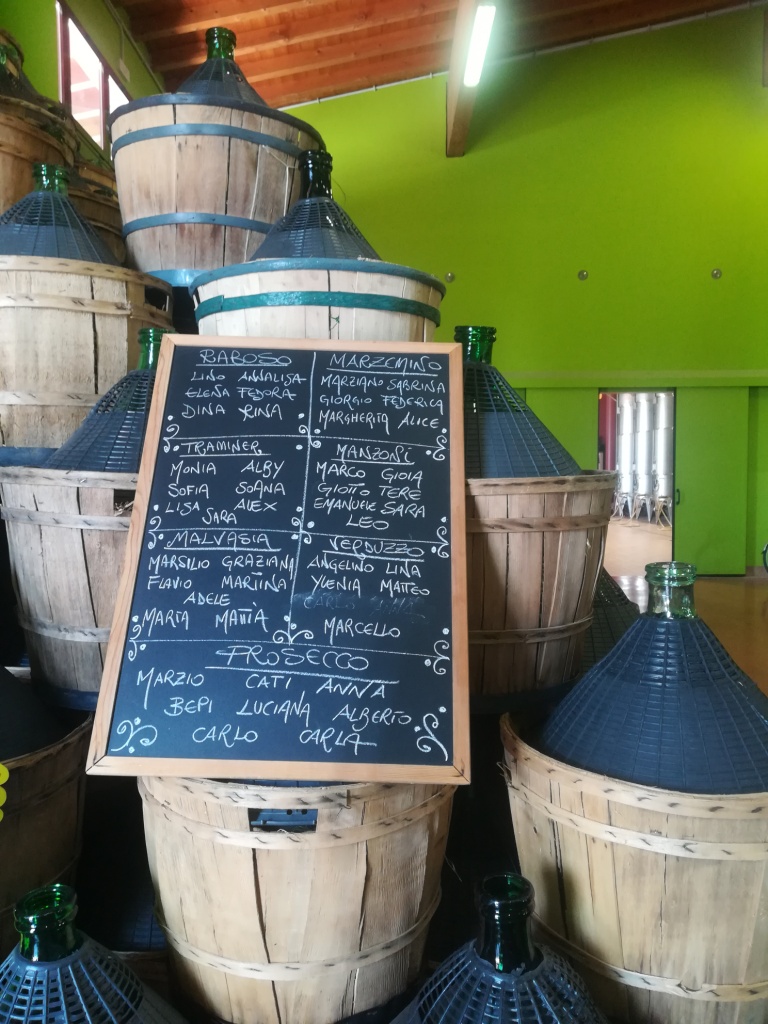 RABOSO
LINO ANNALISA
ELENA FEDORA
DINA RINA
MARZEMINO
MARZIANO SABRINA
GIORGIO FEDERICA
MARGHERITA ALICE
TRAMINER
MONIA ALBY
SOFIA SOANA
LISA ALEX
SARA
MANZONI
MARCO GIOIA
GIOTTO TERE
EMANUELE SARA
LEO
MALVASIA
MARSILIO GRAZIANA
FLAVIO MARTINA
ADELE
MARTA MATTIÀ
VERDUZZO
ANGELINO LINA
YLENIA MATTEO
MARCELLO
PROSECCO
MARZIO CATI ANNA
BEPI LUCIANA ALBERTO
CARLO CARLA